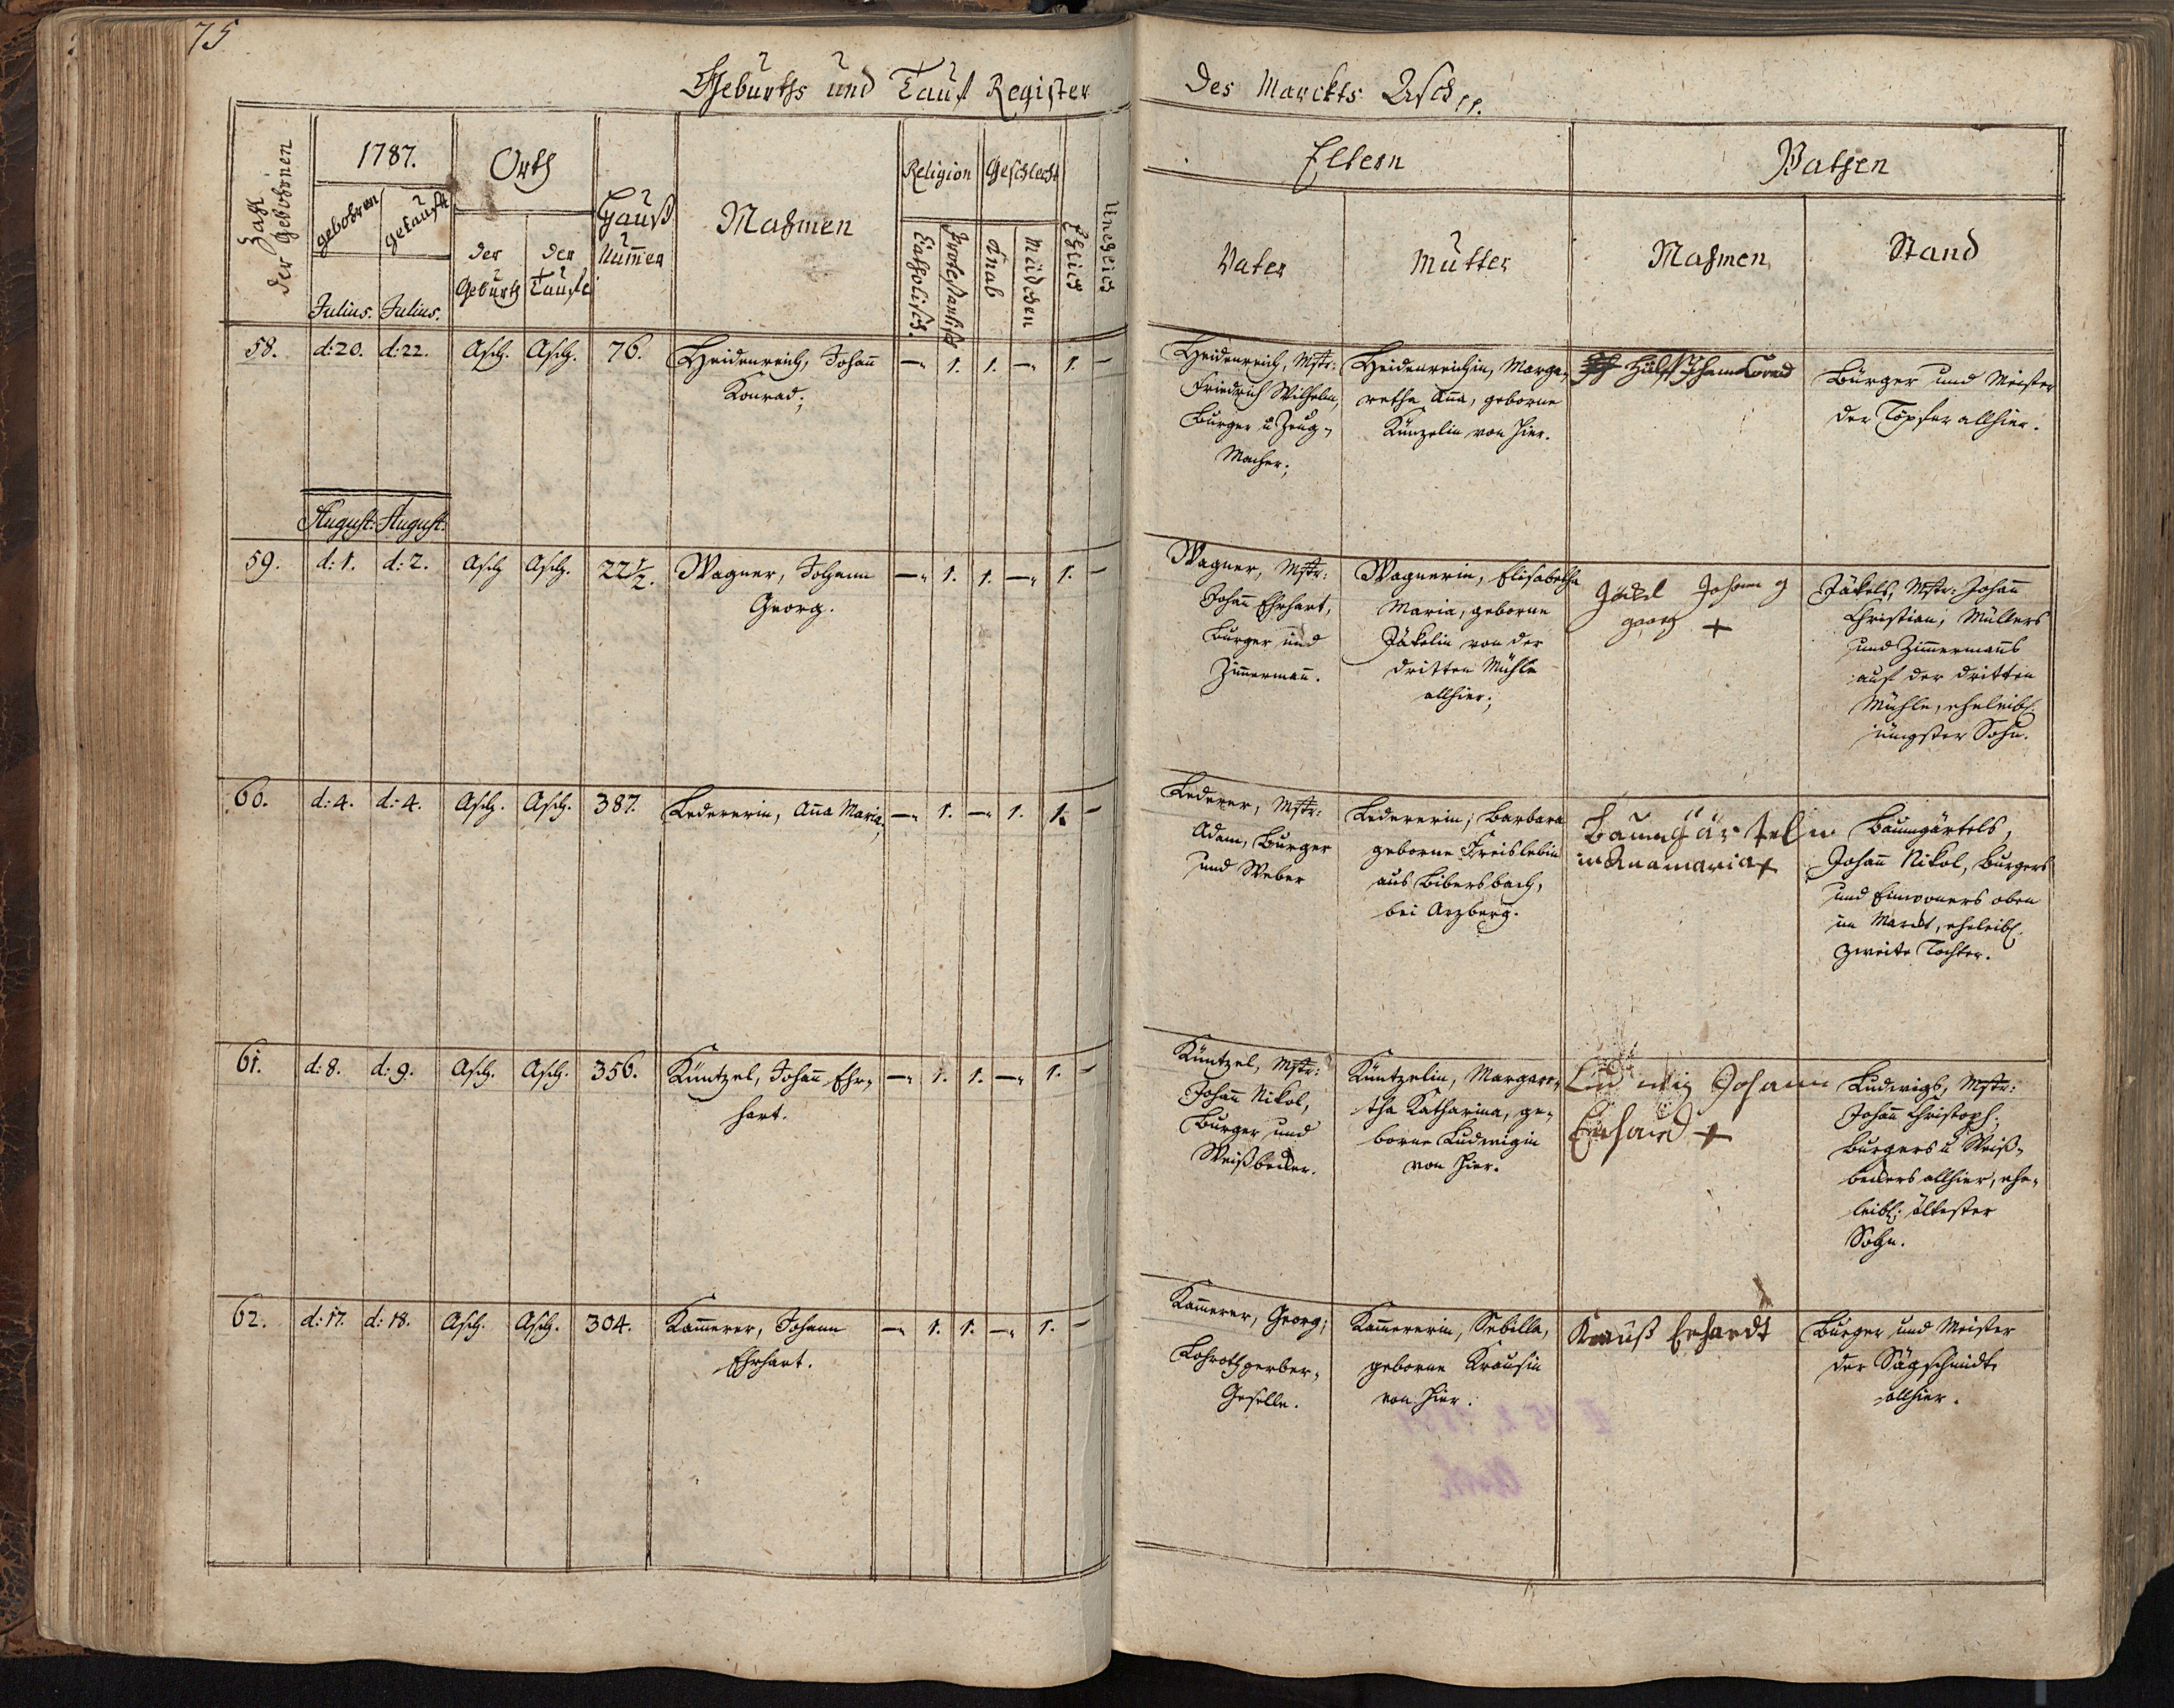 75
Geburths und Tauf Register
Des Marckts Asch
Zahl der Gebohrnen
1787.
gebohren
getauft
Julius.
Julius.
Orth
der Geburth
der Taufe
Hauß Num̅er
Nahmen
Religion
Catholisch.
Protestantisch
Geschlecht
Knab
Mädchen
Ehlich
Unehlich
Eltern
Vater
Mutter
Pathen
Nahmen
Stand
58.
d: 20.
d: 22.
Asch.
Asch.
76.
Heidenreich, Johan̅
Konrad.
— 1. 1. — 1. —
Heidenreich, Mstr:
Friedrich Wilhelm,
Burger u Zeug-
Macher.
Heidenreichin, Marga-
retha An̅a, geborne
Künzelin von hier.
Bürger und Meister
der Töpfer allhier.
August.
August.
59.
d: 1.
d: 2.
Asch
Asch.
22½.
Wagner, Johann
Georg.
— 1. 1. — 1. —
Wagner, Mstr:
Johan̅ Ehrhart,
Burger und
Zim̅erman̅.
Wagnerin, Elisabetha
Maria, geborne
Jäkelin von der
dritten Mühle
allhier.
Jäckel Johann
georg +
Jäkels, Mstr: Johan̅
Christian, Müllers
und Zim̅ermanns
auf der dritten
Mühle, eheleibl.
jüngster Sohn.
60.
d: 4.
d: 4.
Asch.
Asch.
387.
Ledererin, An̅a Maria,
— 1. — 1. 1. —
Lederer, Mstr:
Adam, Burger
und Weber
Ledererin, Barbara
geborne Freislebin
aus Bibersbach,
bei Arzberg.
Baumgärteln
in Anamaria +
Baumgärtels,
Johan̅ Nikol, Burgers
und Einwoners oben
im Marckt, eheleibl.
zweite Tochter.
61.
d: 8.
d: 9.
Asch.
Asch.
356.
Küntzel, Johan̅ Ehr-
hart.
— 1. 1. — 1. —
Küntzel, Mstr:
Johan̅ Nikol,
Burger und
Weißbecker.
Küntzelin, Margare-
tha Katharina, ge-
borne Ludwigin
von hier.
Ludwig Johann
Erhard +
Ludwigs, Mstr:
Johan̅ Christoph,
Burgers u Weiß-
beckers allhier, ehe-
leibl. ältester
Sohn.
62.
d: 17.
d: 18.
Asch.
Asch.
304.
Kam̅erer, Johann
Ehrhart.
— 1. 1. — 1. —
Kam̅erer, Georg,
Lohrothgerber-
Geselle.
Kam̅ererin, Sebilla,
geborne Krausin
von hier.
Krauß Erhardt
Burger und Meister
der Sägschmidte
allhier.